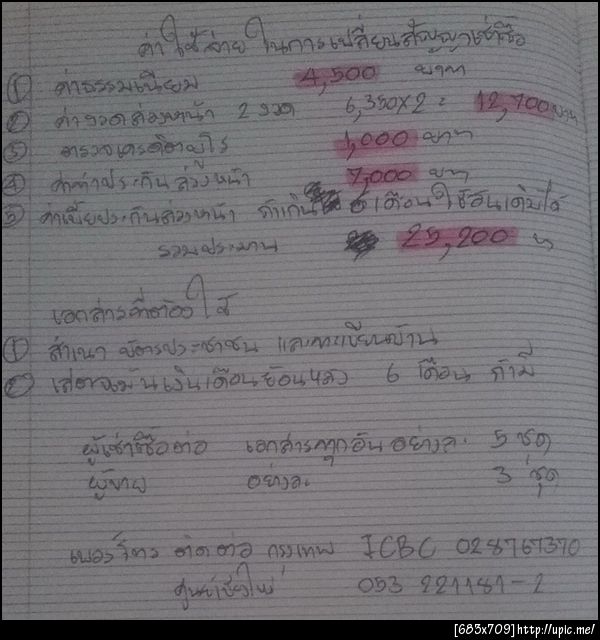 ค่าใช้จ่ายในการเปลี่ยนสัญญาเช่าซื้อ
① ค่าธรรมเนียม 4,500 บาท
② ค่างวดล่วงหน้า 2 งวด 6,350×2 = 12,700 บาท
③ ตรวจเครดิตบูโร 1,000 บาท
④ ค่าประกันล่วงหน้า 7,000 บาท
⑤ ค่าเบี้ยประกันล่วงหน้า ถ้าเกิน 6 เดือนใช้อันเดิมได้
รวมประมาน 25,200 บ
เอกสารที่ต้องใช้
① สำเนา บัตรประชาชน และทะเบียนบ้าน
② เสตจเม้นเงินเดือนย้อนหลัง 6 เดือน ถ้ามี
ผู้เช่าซื้อต่อ เอกสารทุกอันอย่างละ 5 ชุด
ผู้ขาย อย่างละ 3 ชุด
เบอร์โทร ติดต่อ กรุงเทพ ICBC 028767370
ศูนย์เชียงใหม่ 053 221181-2
[683x709]http://upic.me/